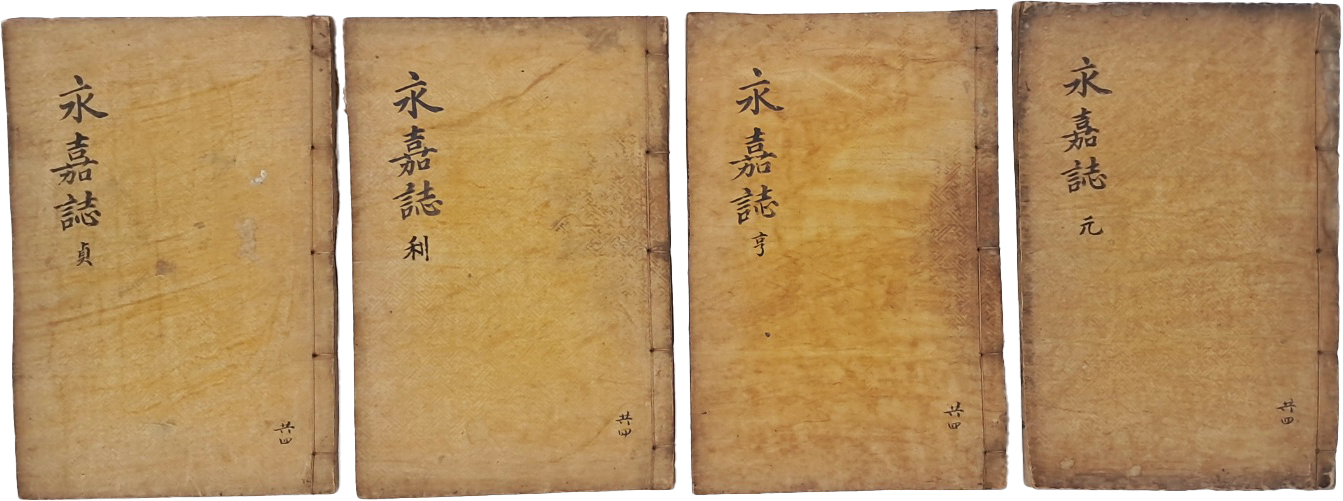 永嘉誌 元
共四
永嘉誌 亨
共四
永嘉誌 利
共四
永嘉誌 貞
共四